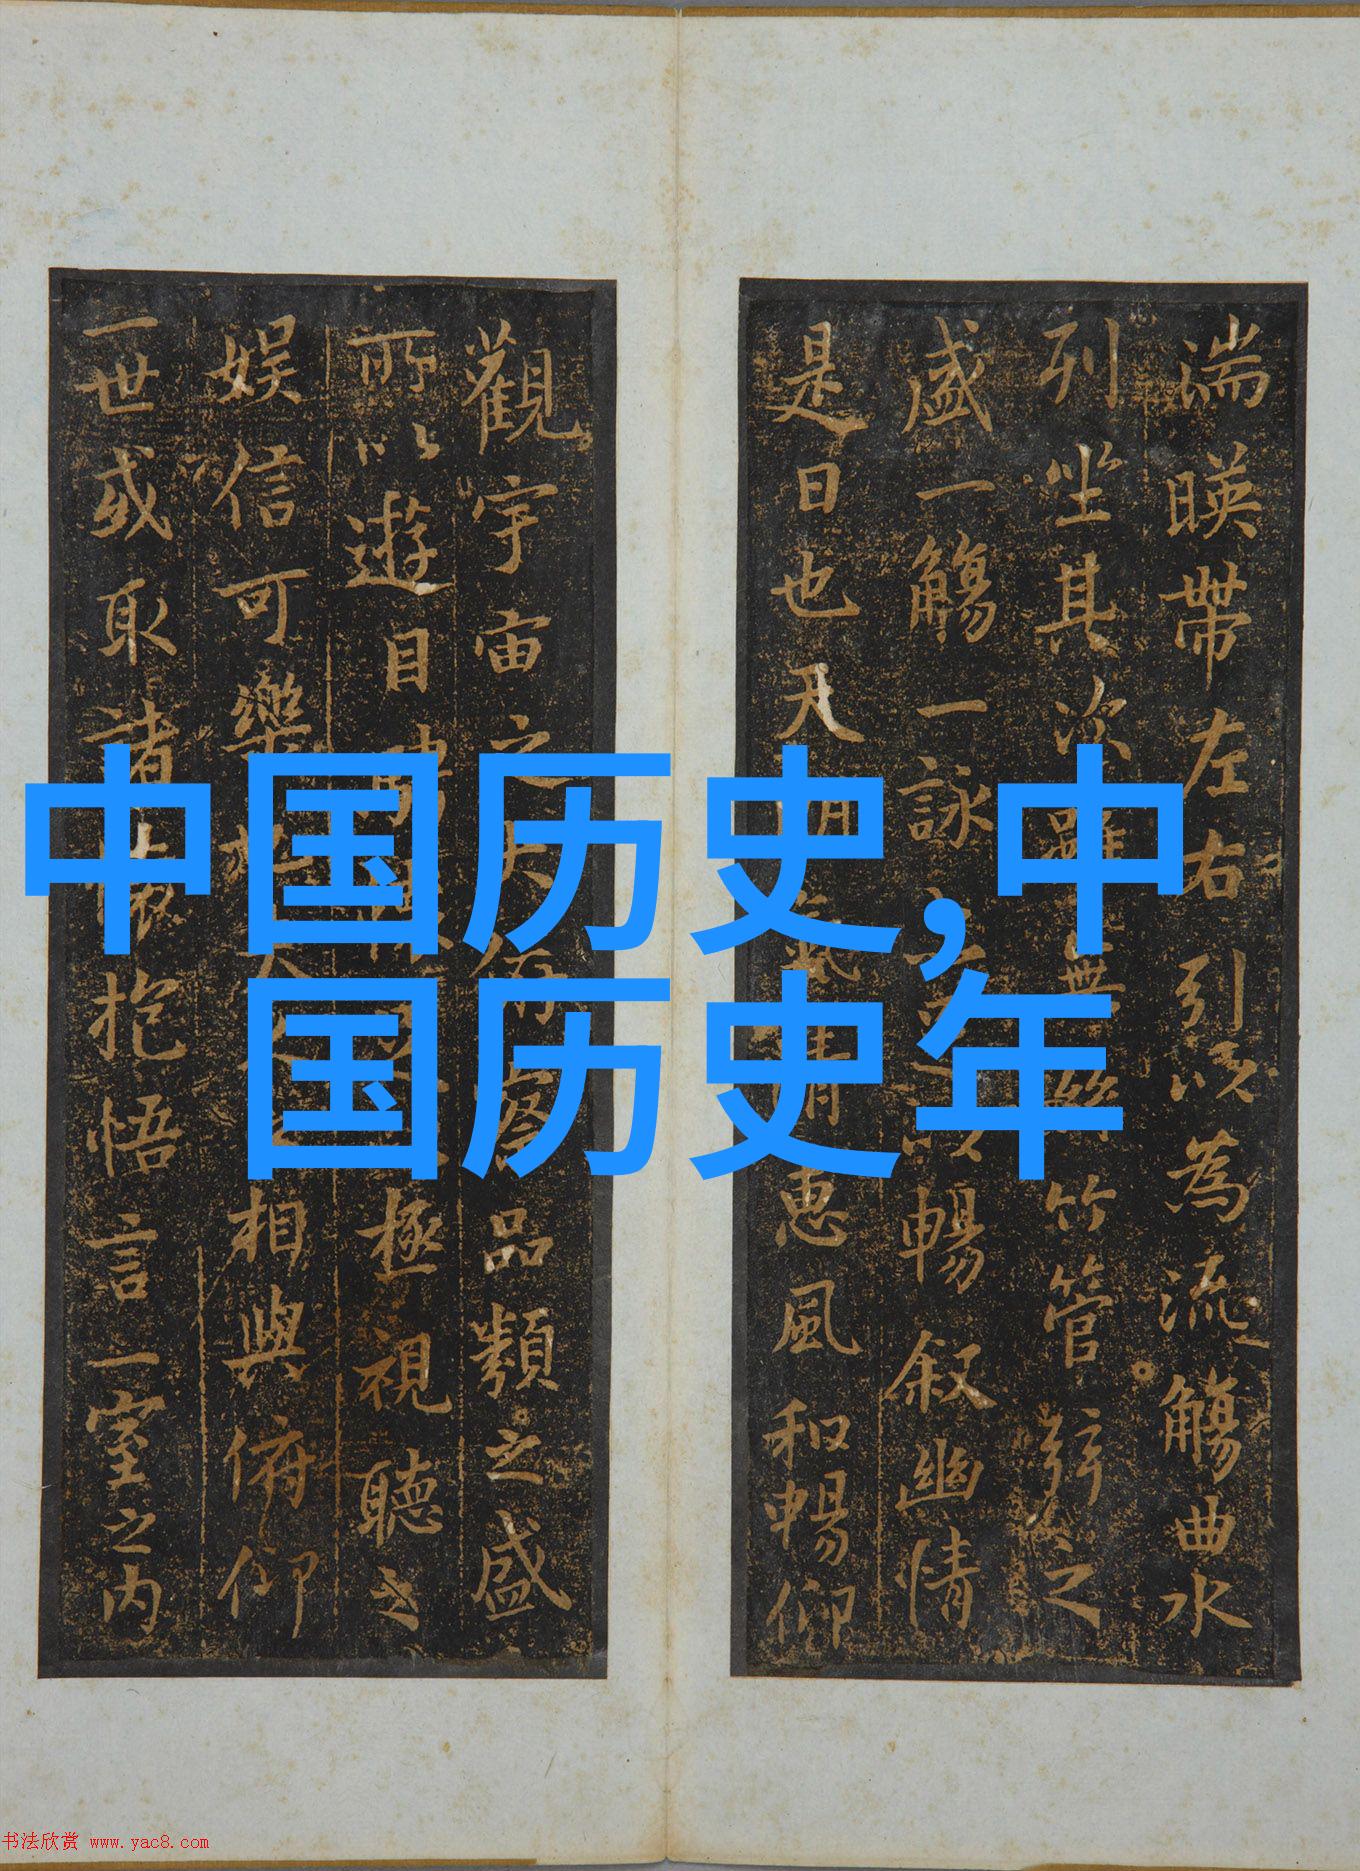 中国历史,中
国历史年
湍暎帶左右引以為流觴曲水
列坐其次雖無絲竹管弦之
盛一觴一詠暢叙幽情
是日也天朗氣清惠風和暢仰
觀宇宙之大俯察品類之盛
所以遊目騁懷極視聽之
娱信可樂相與俯仰
一世或取諸懷抱悟言一室之内
书法欣赏 www.yac8.com